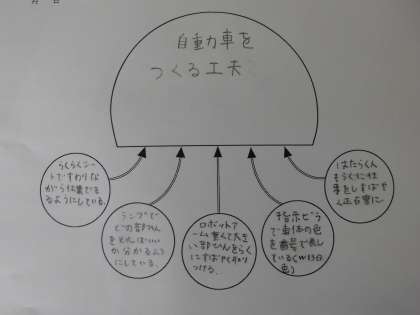 月 日
自動車を
つくる工夫
らくらくシー
トですわりな
がら仕事でき
るようにしている。
ランプで
どの部ひん
をとればいい
か分かるよう
にしている。
ロボットア
ームを
い部ひんをらく
にすばやくとり
つける。
指示ビラ
で車体の色
を番号で表し
ている
色)
はたらく人
もらくに仕
事をしすばや
く正確に